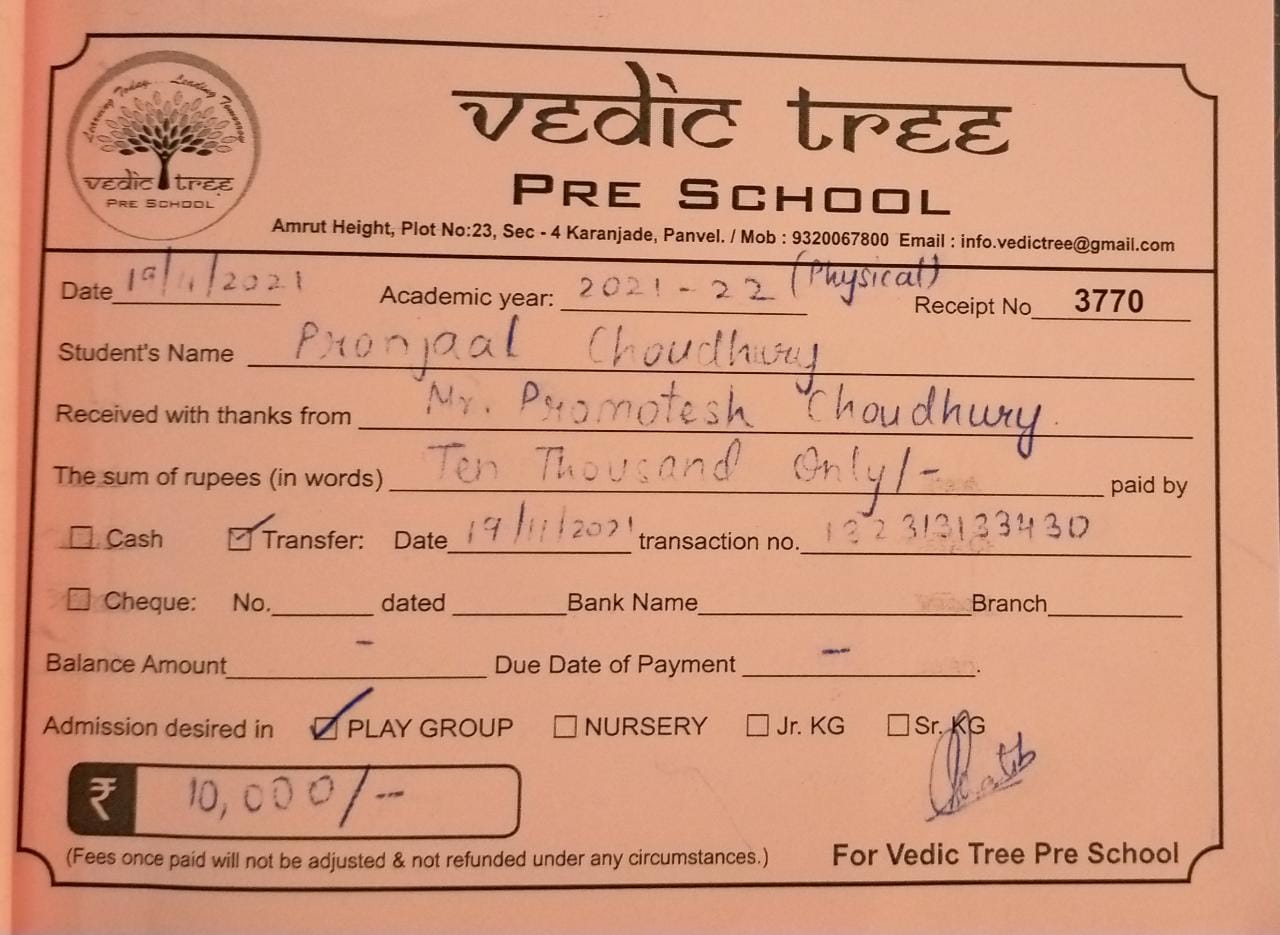 Learning Today Leading Tomorrow
vedic tree
PRE SCHOOL
vedic tree
PRE SCHOOL
Amrut Height, Plot No:23, Sec - 4 Karanjade, Panvel. / Mob : 9320067800 Email : info.vedictree@gmail.com
Date 19/11/2021 Academic year: 2021-22 (Physical) Receipt No 3770
Student's Name Pronjaal Choudhury
Received with thanks from Mr. Promotesh Choudhury.
The sum of rupees (in words) Ten Thousand Only/- paid by
Cash Transfer: Date 19/11/2021 transaction no. 132313133430
Cheque: No. dated Bank Name Branch
Balance Amount - Due Date of Payment - .
Admission desired in PLAY GROUP NURSERY Jr. KG Sr. KG
₹ 10,000/--
(Fees once paid will not be adjusted & not refunded under any circumstances.) For Vedic Tree Pre School